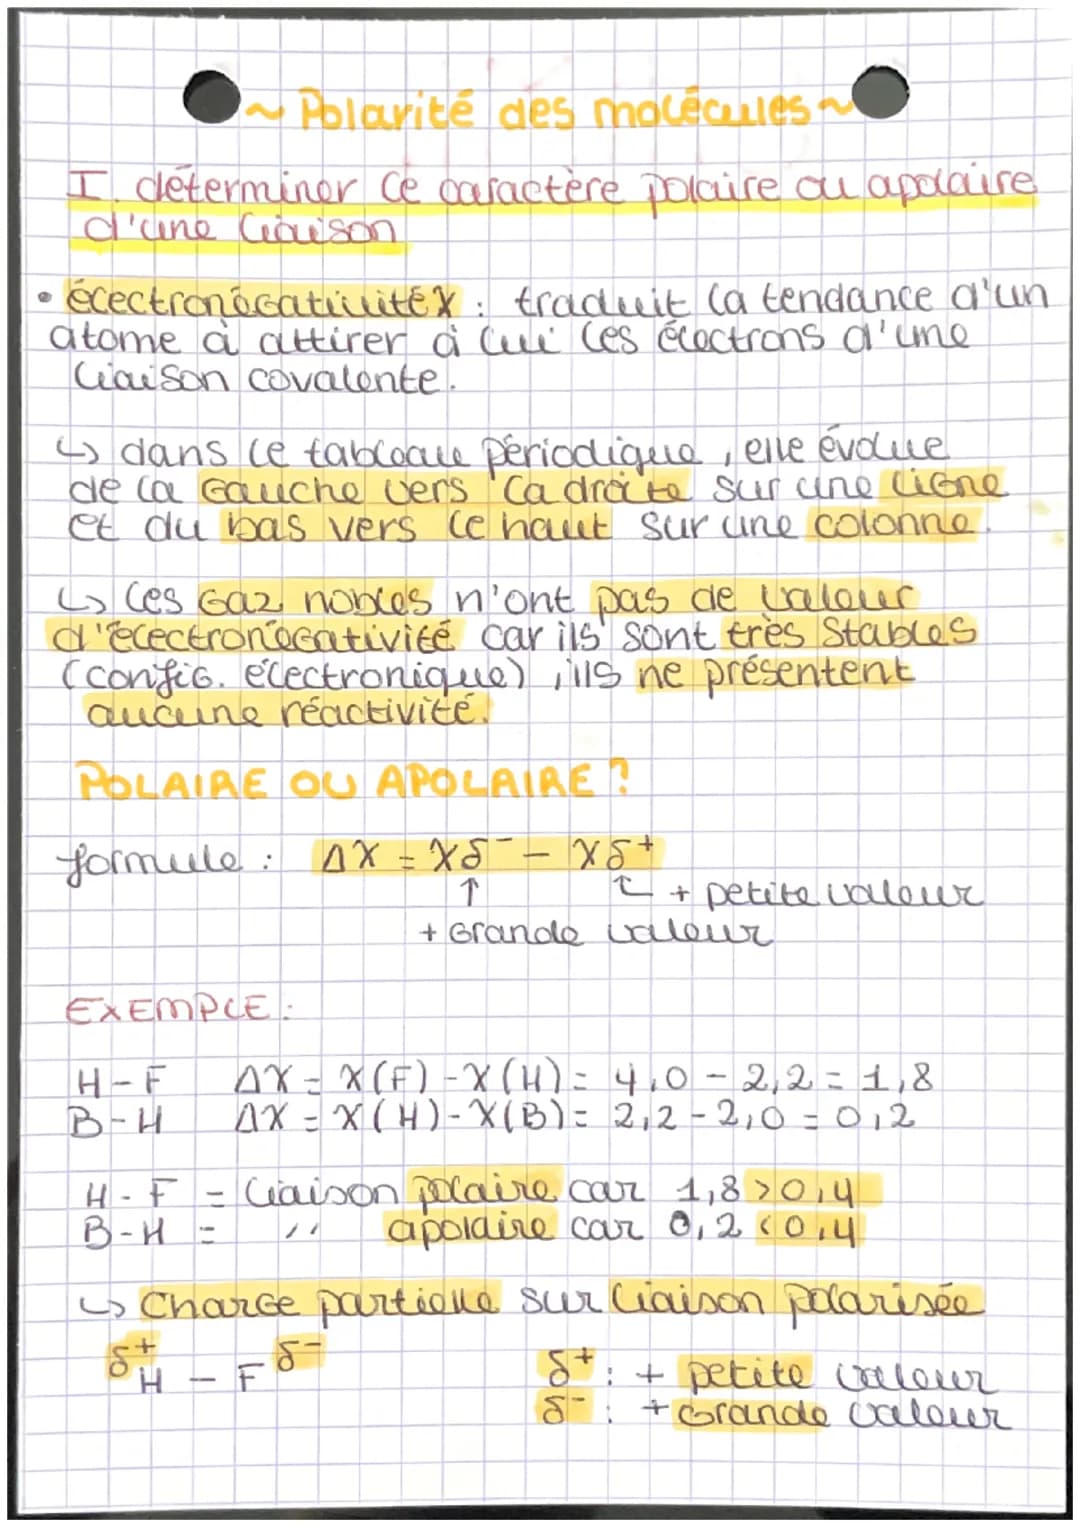 ~ Polarité des molécules ~
I. déterminer le caractère polaire ou apolaire
d'une liaison
• électronégativité χ : traduit la tendance d'un
atome à attirer à lui les électrons d'une
liaison covalente.
↳ dans le tableau périodique, elle évolue
de la gauche vers la droite sur une ligne
et du bas vers le haut sur une colonne.
↳ les gaz nobles n'ont pas de valeur
d'électronégativité car ils sont très stables
(config. électronique), ils ne présentent
aucune réactivité.
POLAIRE OU APOLAIRE ?
formule : Δχ = χδ⁻ - χδ⁺
↑ ↑ + petite valeur
+ grande valeur
EXEMPLE :
H-F Δχ = χ(F) - χ(H) = 4,0 - 2,2 = 1,8
B-H Δχ = χ(H) - χ(B) = 2,2 - 2,0 = 0,2
H-F = liaison polaire car 1,8 > 0,4
B-H = '' apolaire car 0,2 < 0,4
↳ Charge partielle sur liaison polarisée
δ⁺H - Fδ⁻ δ⁺ : + petite valeur
δ⁻ : + grande valeur